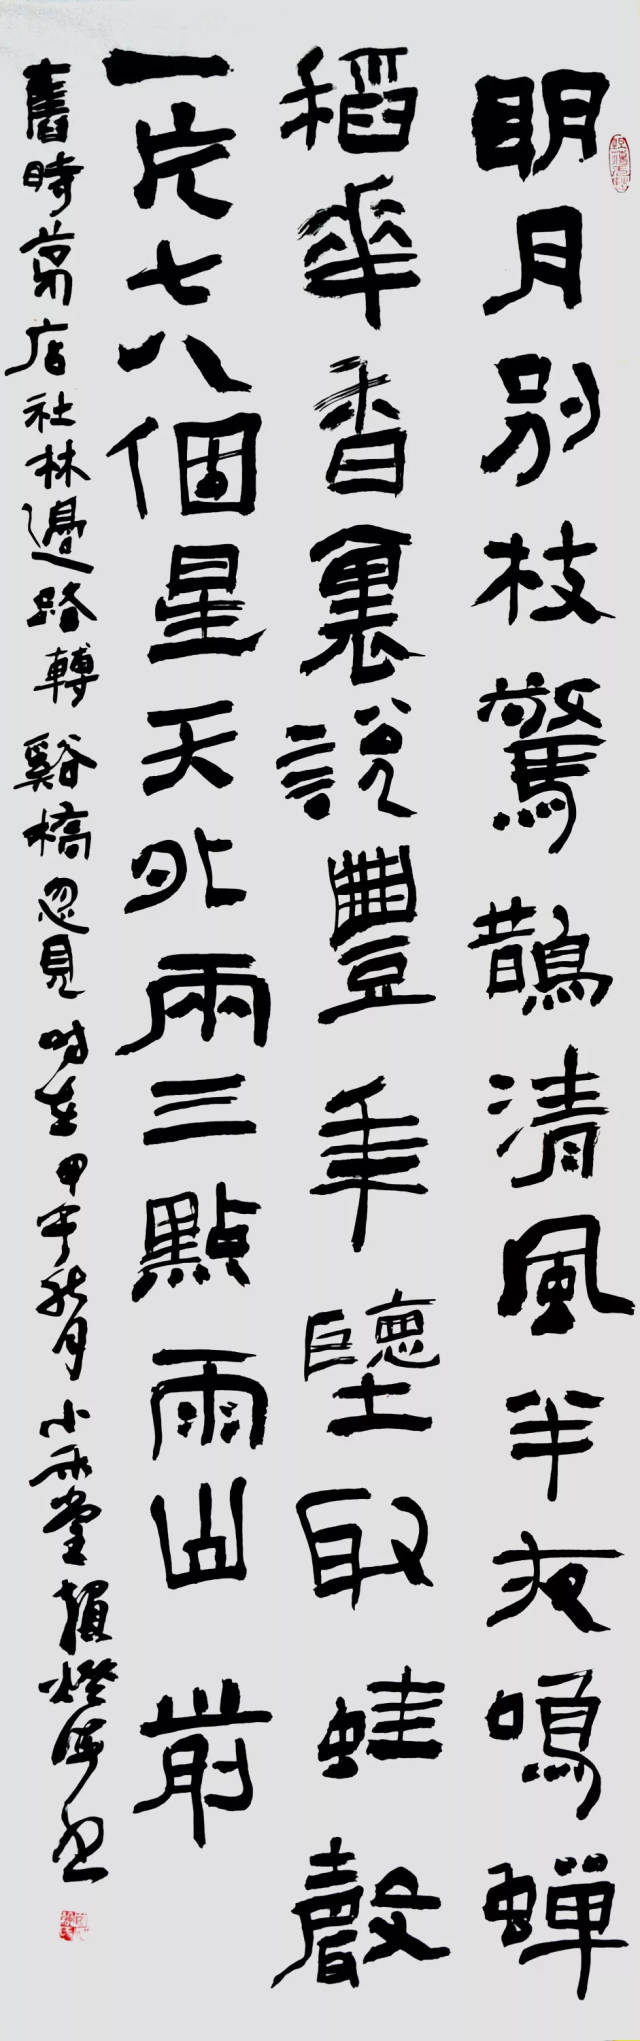 明月別枝驚鵲清風半夜鳴蟬
稻華香裏說豐年聽取蛙聲
一片七八個星天外兩三點雨山前
舊時茅店社林邊路轉谿橋忽見 時在甲午秋月小 堂